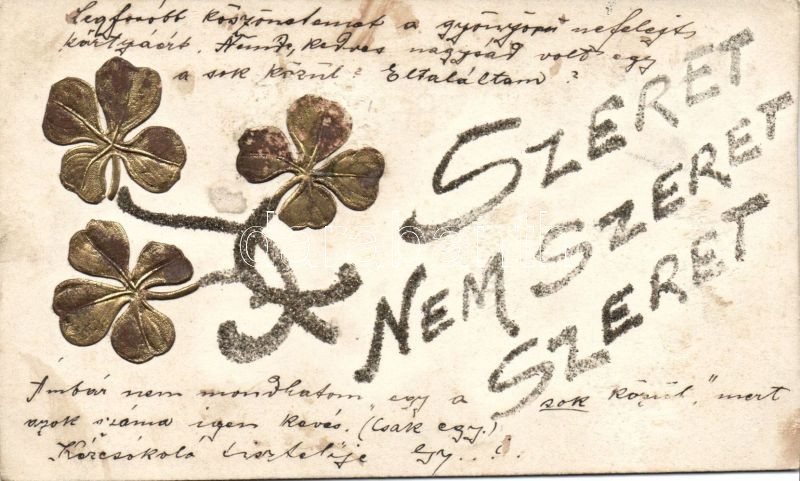 Legforróbb köszönetemet a gyönyörű nefelejts
kártyáért. kedves nagysád volt egy
a sok közül? Eltaláltam?
SZERET
NEM SZERET
SZERET
Ámbár nem mondhatom „egy a sok közül," mert
azok száma igen kevés. (Csak egy.)
Kézcsókoló tisztelője Egy..?.